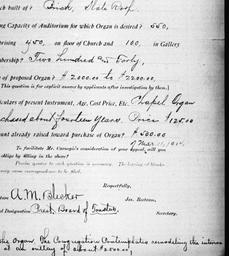 ch built of? Brick, Slate Roof
ng Capacity of Auditorium for which Organ is desired? 550,
rising 450, on floor of Church and 100, in Gallery
mbership? Two Hundred and Forty,
of proposed Organ? $2000.00 to $2200.00
This question is for explicit answer by applicants after investigation by them.)
iculars of present Instrument, Age, Cost Price, Etc. Chapel Organ
chased about fourteen years. Price $125.00
unt already raised toward purchase of Organ? $500.00
To facilitate Mr. Carnegie's consideration of your appeal, will you
oblige by filling in the above?
Precise answer to each question is necessary.
Respectfully,
Jas. Bertram,
Secretary.
Name A. M.
nd Designation Prest. Board of Trustees
the Organ. The Congregation Contemplates remodeling the interior
at an outlay of about $2500.00,